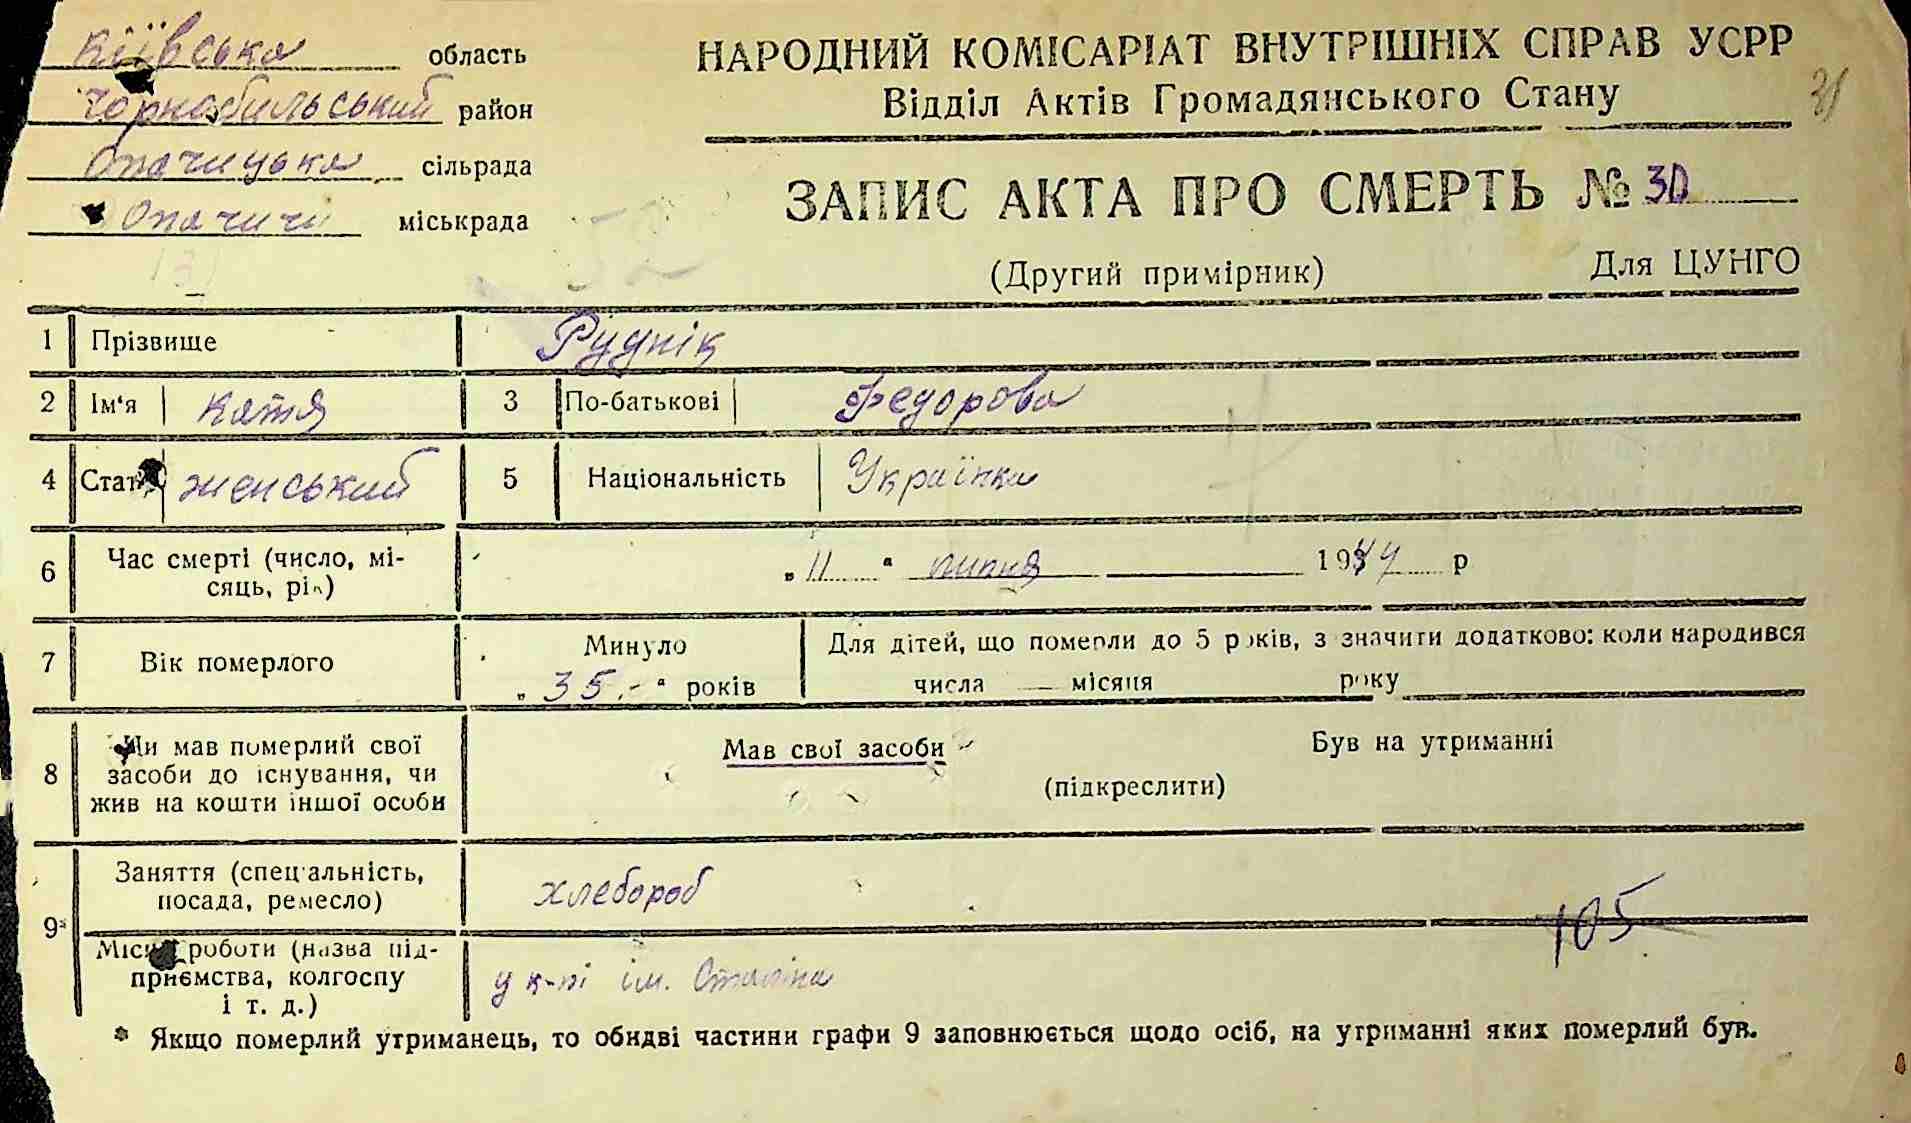 Київська область
Чорнобильський район
Опачицька сільрада
Опачичи міськрада
НАРОДНИЙ КОМІСАРІАТ ВНУТРІШНІХ СПРАВ УСРР
Відділ Актів Громадянського Стану
31
ЗАПИС АКТА ПРО СМЕРТЬ № 30
52
(Другий примірник) Для ЦУНГО
1 Прізвище Руднік
2 Ім'я Катя 3 По-батькові Федорова
4 Стать женський 5 Національність Українка
6 Час смерті (число, мі-
сяць, рік) „ 11 " липня 1944 р
7 Вік померлого Минуло „ 35.- " років
Для дітей, що померли до 5 років, зазначити додатково: коли народився
числа — місяця року
8 Чи мав померлий свої
засоби до існування, чи
жив на кошти іншої особи
Мав свої засоби Був на утриманні
(підкреслити)
9* Заняття (спеціальність,
посада, ремесло) хлебороб
105
Місце роботи (назва під-
приємства, колгоспу
і т. д.) у к-пі ім. Сталіна
* Якщо померлий утриманець, то обидві частини графи 9 заповнюється щодо осіб, на утриманні яких померлий був.